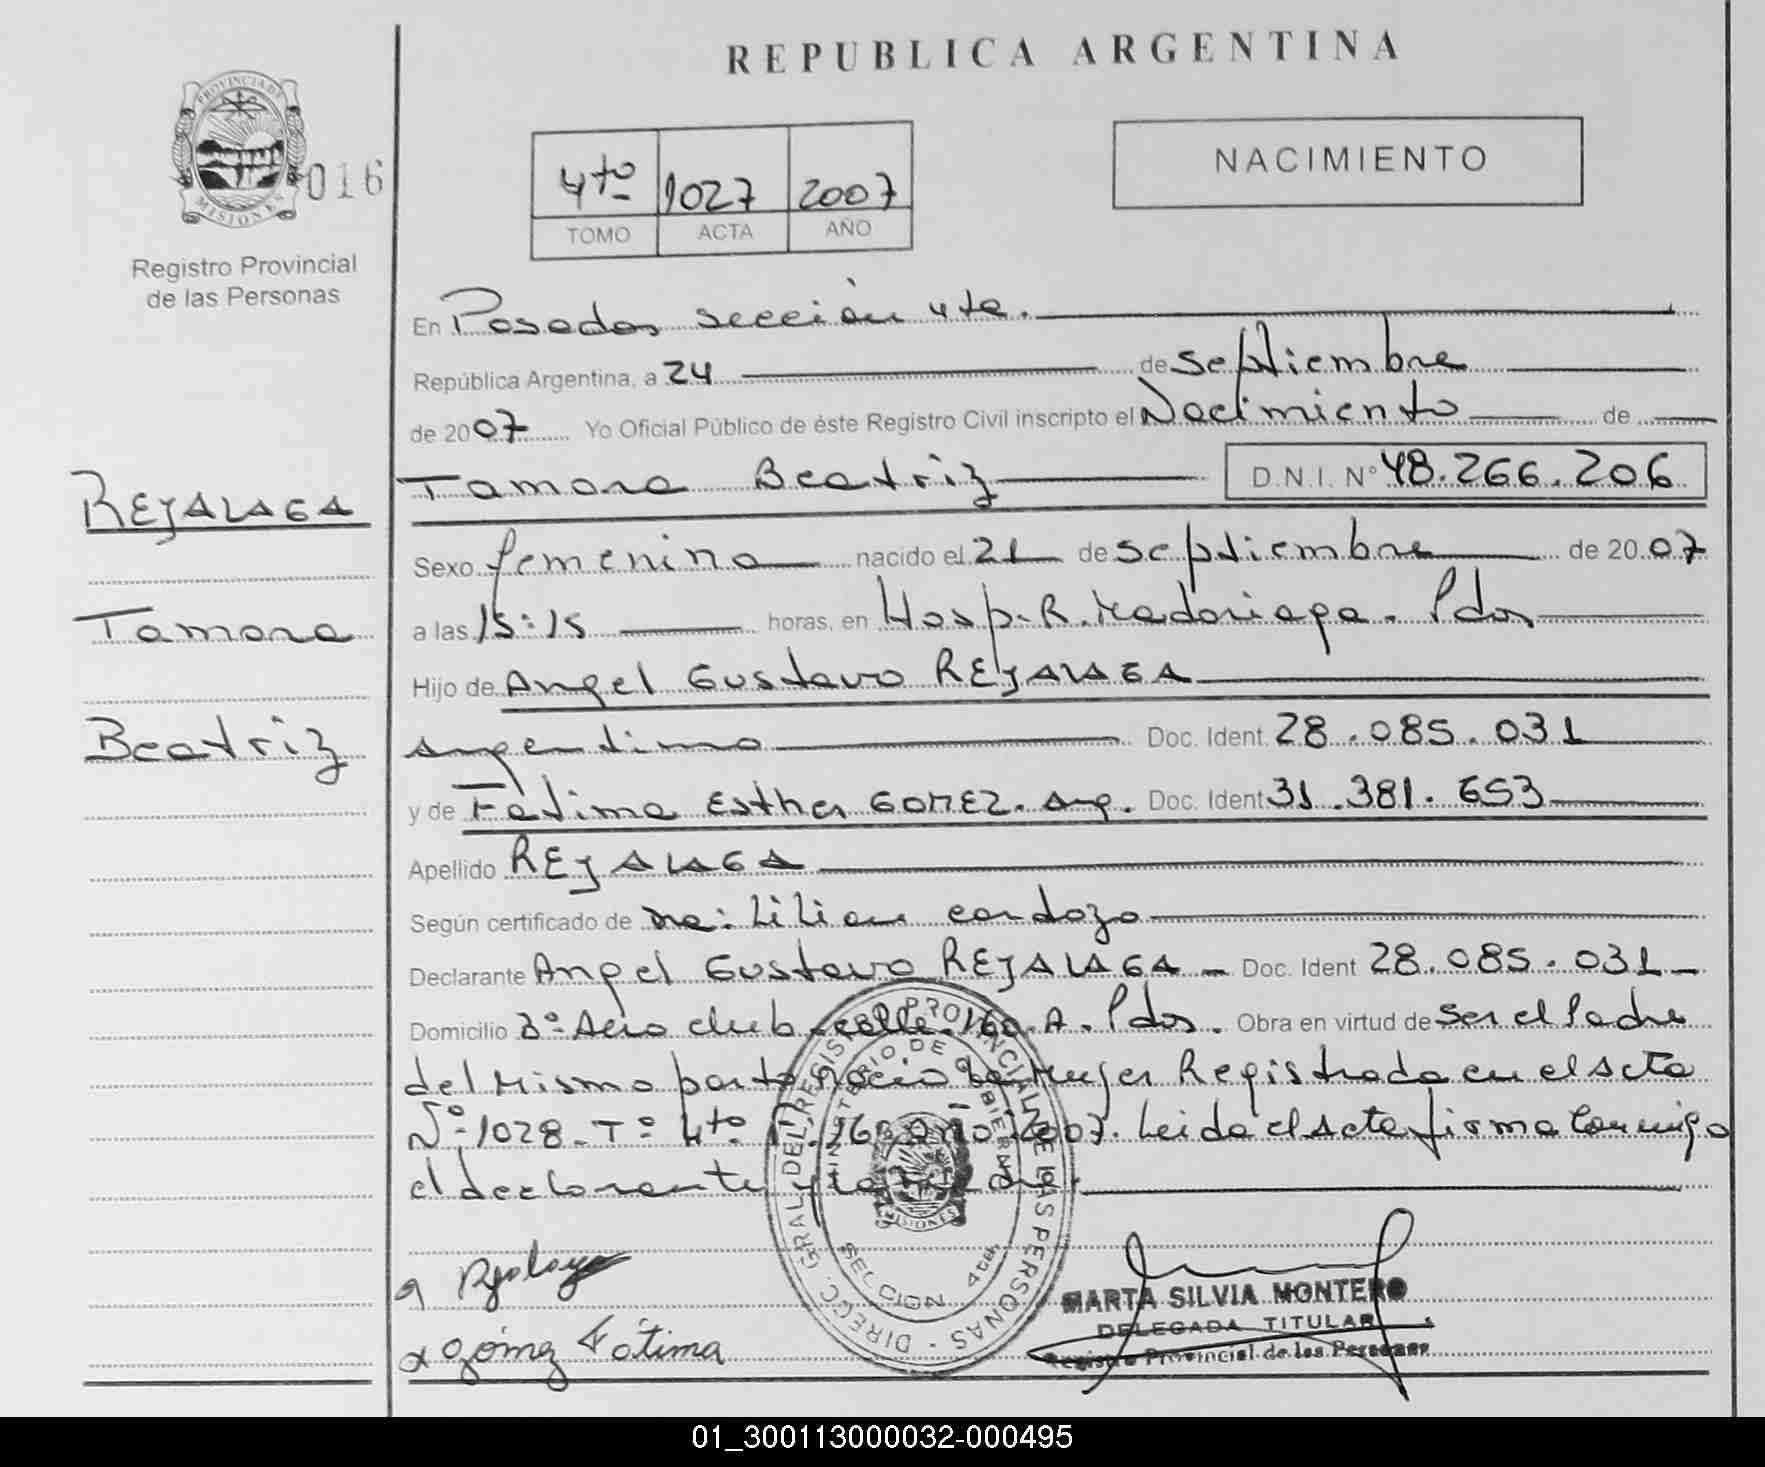 REPUBLICA ARGENTINA
PROVINCIA DE
MISIONES
016
Registro Provincial
de las Personas
4to 1027 2007
TOMO ACTA AÑO
NACIMIENTO
En Posadas sección 4ta.
República Argentina, a 24 de septiembre
de 2007 Yo Oficial Público de éste Registro Civil inscripto el Nacimiento de
Tamara Beatriz D.N.I. Nº 48.266.206
REJALAGA
Tamara
Beatriz
Sexo femenino nacido el 21 de septiembre de 2007
a las 15:15 horas, en Hosp. R. Madariaga. Pdas
Hijo de Angel Gustavo REJALAGA
argentino Doc. Ident. 28.085.031
y de Fátima Esther GOMEZ. arg. Doc. Ident 31.381.653
Apellido REJALAGA
Según certificado de Lilian Cardozo
Declarante Angel Gustavo REJALAGA Doc. Ident 28.085.031
Domicilio Bº Aero club calle 160 A. Pdas. Obra en virtud de ser el Padre
del Mismo parto nació la Mujer Registrada en el acta
Nº 1028 - Tº 4to año 2007. Leida el acta firma conmigo
el declarante y la Madre.
DIRECC. GRAL. DEL REGISTRO PROVINCIAL DE LAS PERSONAS
MINISTERIO DE GOBIERNO
MISIONES
SECCION 4ta
Gómez Fátima
MARTA SILVIA MONTERO
DELEGADA TITULAR
Registro Provincial de las Personas
01_300113000032-000495